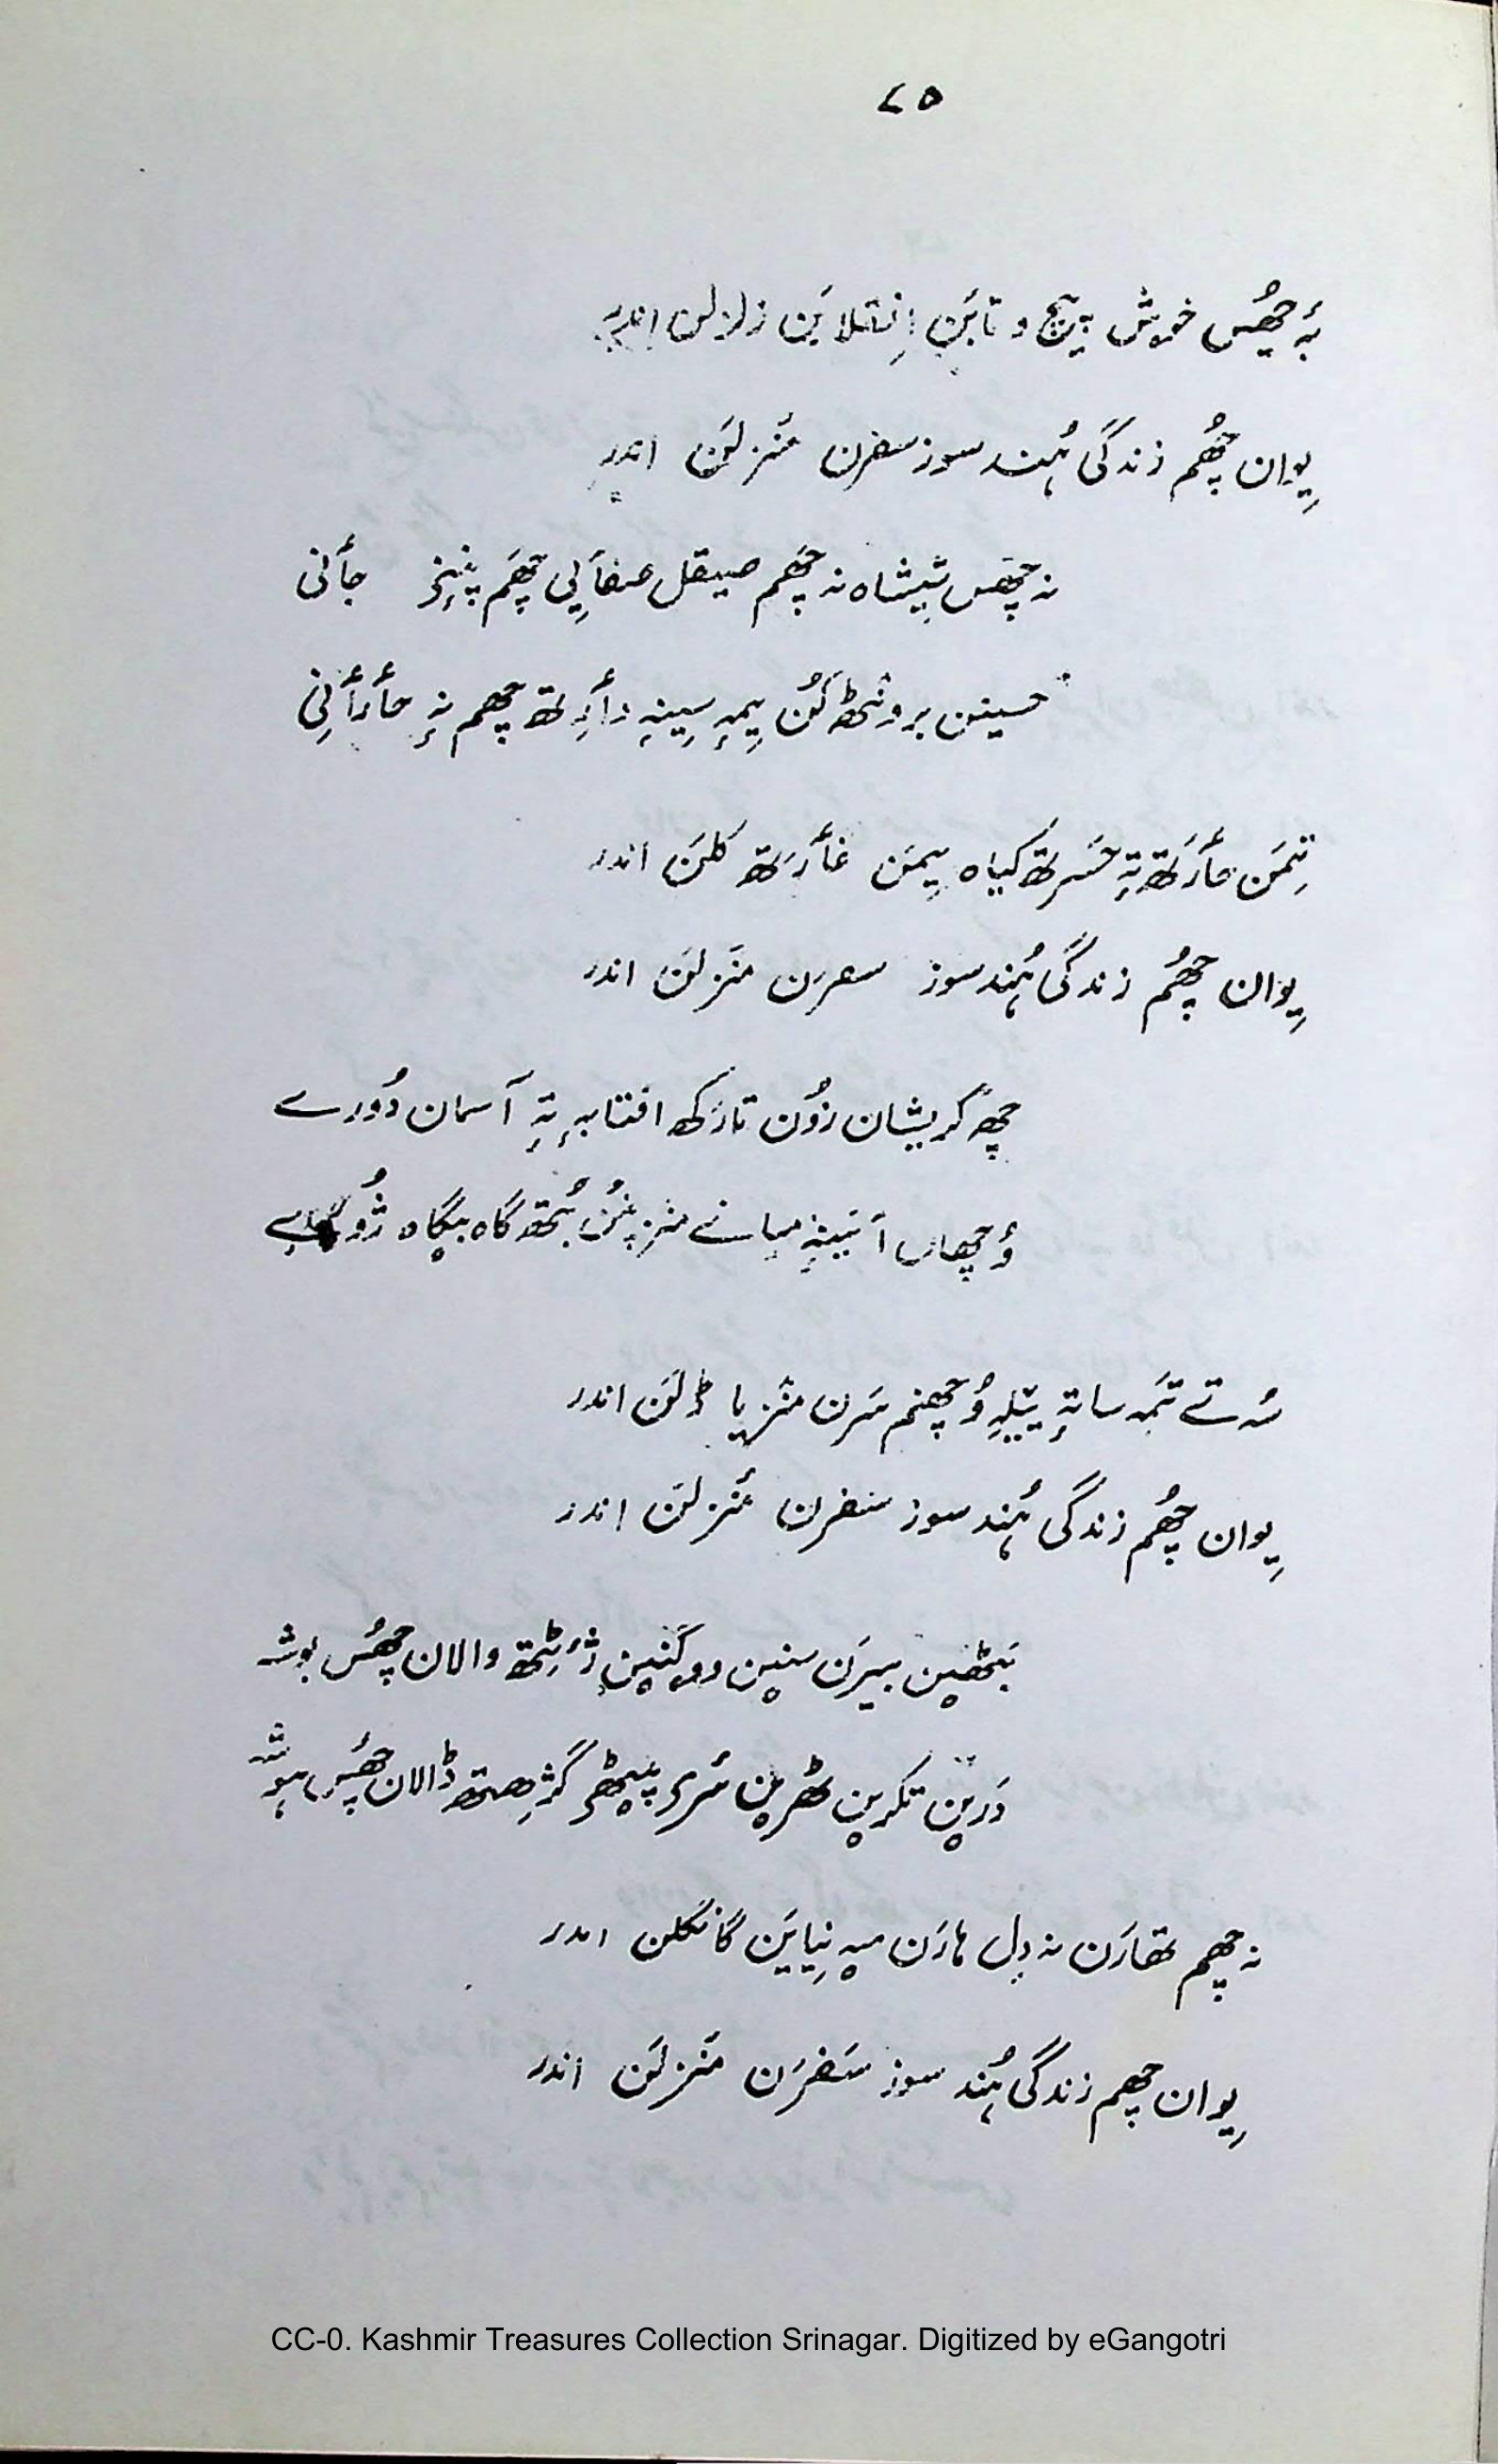 ۷۵
بہٕ چھُس خوش پیچ و تابَن اِنقلابَن زلزلن اندر
یِوان چھُم زندگی ہُند سوز سفرن مَنزلَن اندر
نہ چھس شیشاہ نہ چھم صیقل صفأیی چھَم پنٕنۍ جأنی
حسینن برونٹھ کُن یِمہِ سینہٕ دأرِتھ چھم نہٕ حأرأنی
تِمَن مأرتھ تہٕ حسرتھ کیاہ یِمَن غأرَتھ کلَن اندر
یِوان چھُم زندگی ہُند سوز سفرَن منَزلَن اندر
چھِ گریشان زوٗن تارَکھ افتابہٕ تہٕ آسمان دوٗرے
وُچھاں آئینہٕ میانے منٛز پنُن بُتھ گاہ بیگاہ
سُہ تے تَمہ ساتہٕ ییٚلہِ وُچھنم سَرن منٛز یا ڈلَن اندر
یِوان چھُم زندگی ہُند سوز سفرن مَنزلَن اندر
بَٹھین بیرَن سنین والان چھُس بوشہ
دَرین تکرین ٹھرین سٔری پیٹھۍ گژھتھ ڈالان چھُس ہوشہ
نہ چھم تھارَن نہ دِل ہارَن میہ نِیایَن گانگلن اندر
یِوان چھم زندگی ہُند سوز سَفرَن مَنزلَن اندر
CC-0. Kashmir Treasures Collection Srinagar. Digitized by eGangotri